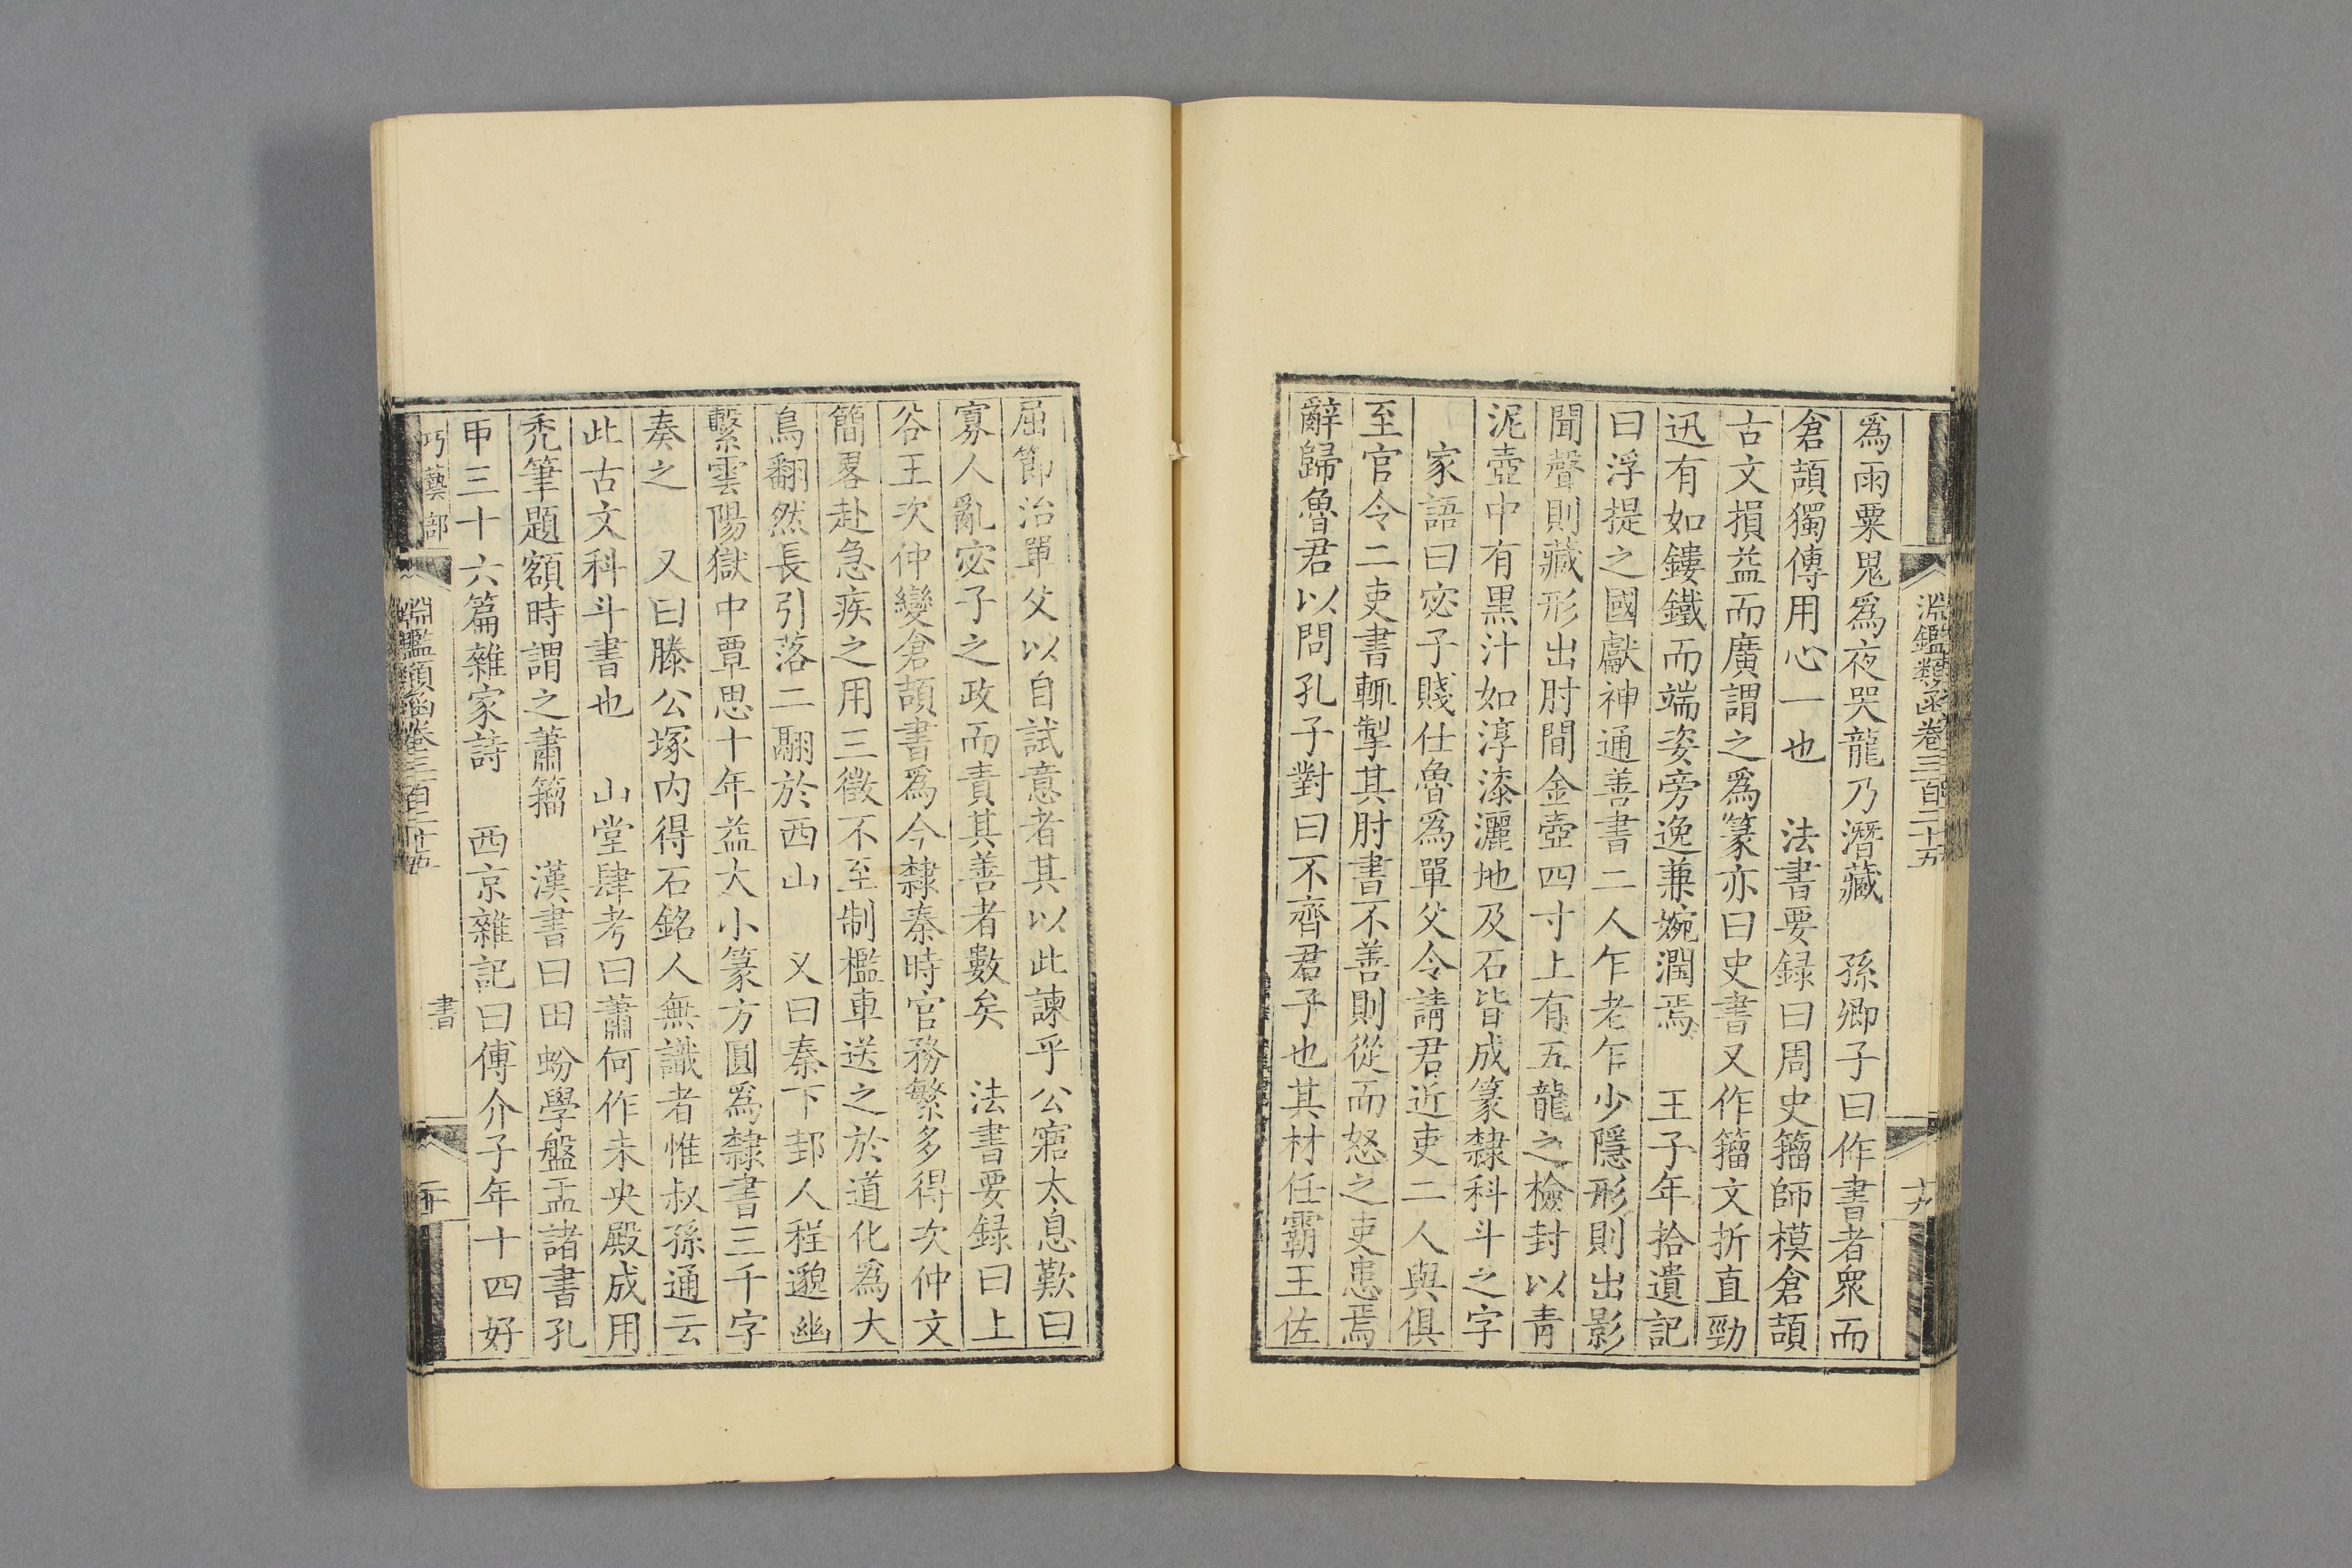 淵鑑類函卷三百二十五 十九
爲雨粟鬼爲夜哭龍乃潛藏 孫卿子曰作書者衆而
倉頡獨傳用心一也 法書要録曰周史籀師模倉頡
古文損益而廣謂之爲篆亦曰史書又作籀文折直勁
迅有如鏤鐵而端姿旁逸兼婉潤焉 王子年拾遺記
曰浮提之國獻神通善書二人乍老乍少隱形則出影
聞聲則藏形出肘間金壺四寸上有五龍之檢封以青
泥壺中有黒汁如淳漆灑地及石皆成篆隸科斗之字
家語曰宓子賤仕魯爲單父令請君近吏二人與俱
至官令二吏書輒掣其肘書不善則從而怒之吏患焉
辭歸魯君以問孔子對曰不齊君子也其材任霸王佐
屈節治單父以自試意者其以此諫乎公寤太息歎曰
寡人亂宓子之政而責其善者數矣 法書要録曰上
谷王次仲變倉頡書爲今隸秦時官務繁多得次仲文
簡畧赴急疾之用三徵不至制檻車送之於道化爲大
鳥翻然長引落二翮於西山 又曰秦下邽人程邈幽
繫雲陽獄中覃思十年益大小篆方圓爲隸書三千字
奏之 又曰滕公塚内得石銘人無識者惟叔孫通云
此古文科斗書也 山堂肆考曰蕭何作未央殿成用
禿筆題額時謂之蕭籀 漢書曰田蚡學盤盂諸書孔
甲三十六篇雜家詩 西京雜記曰傅介子年十四好
巧藝部 淵鑑類函卷三百二十五 書 二十